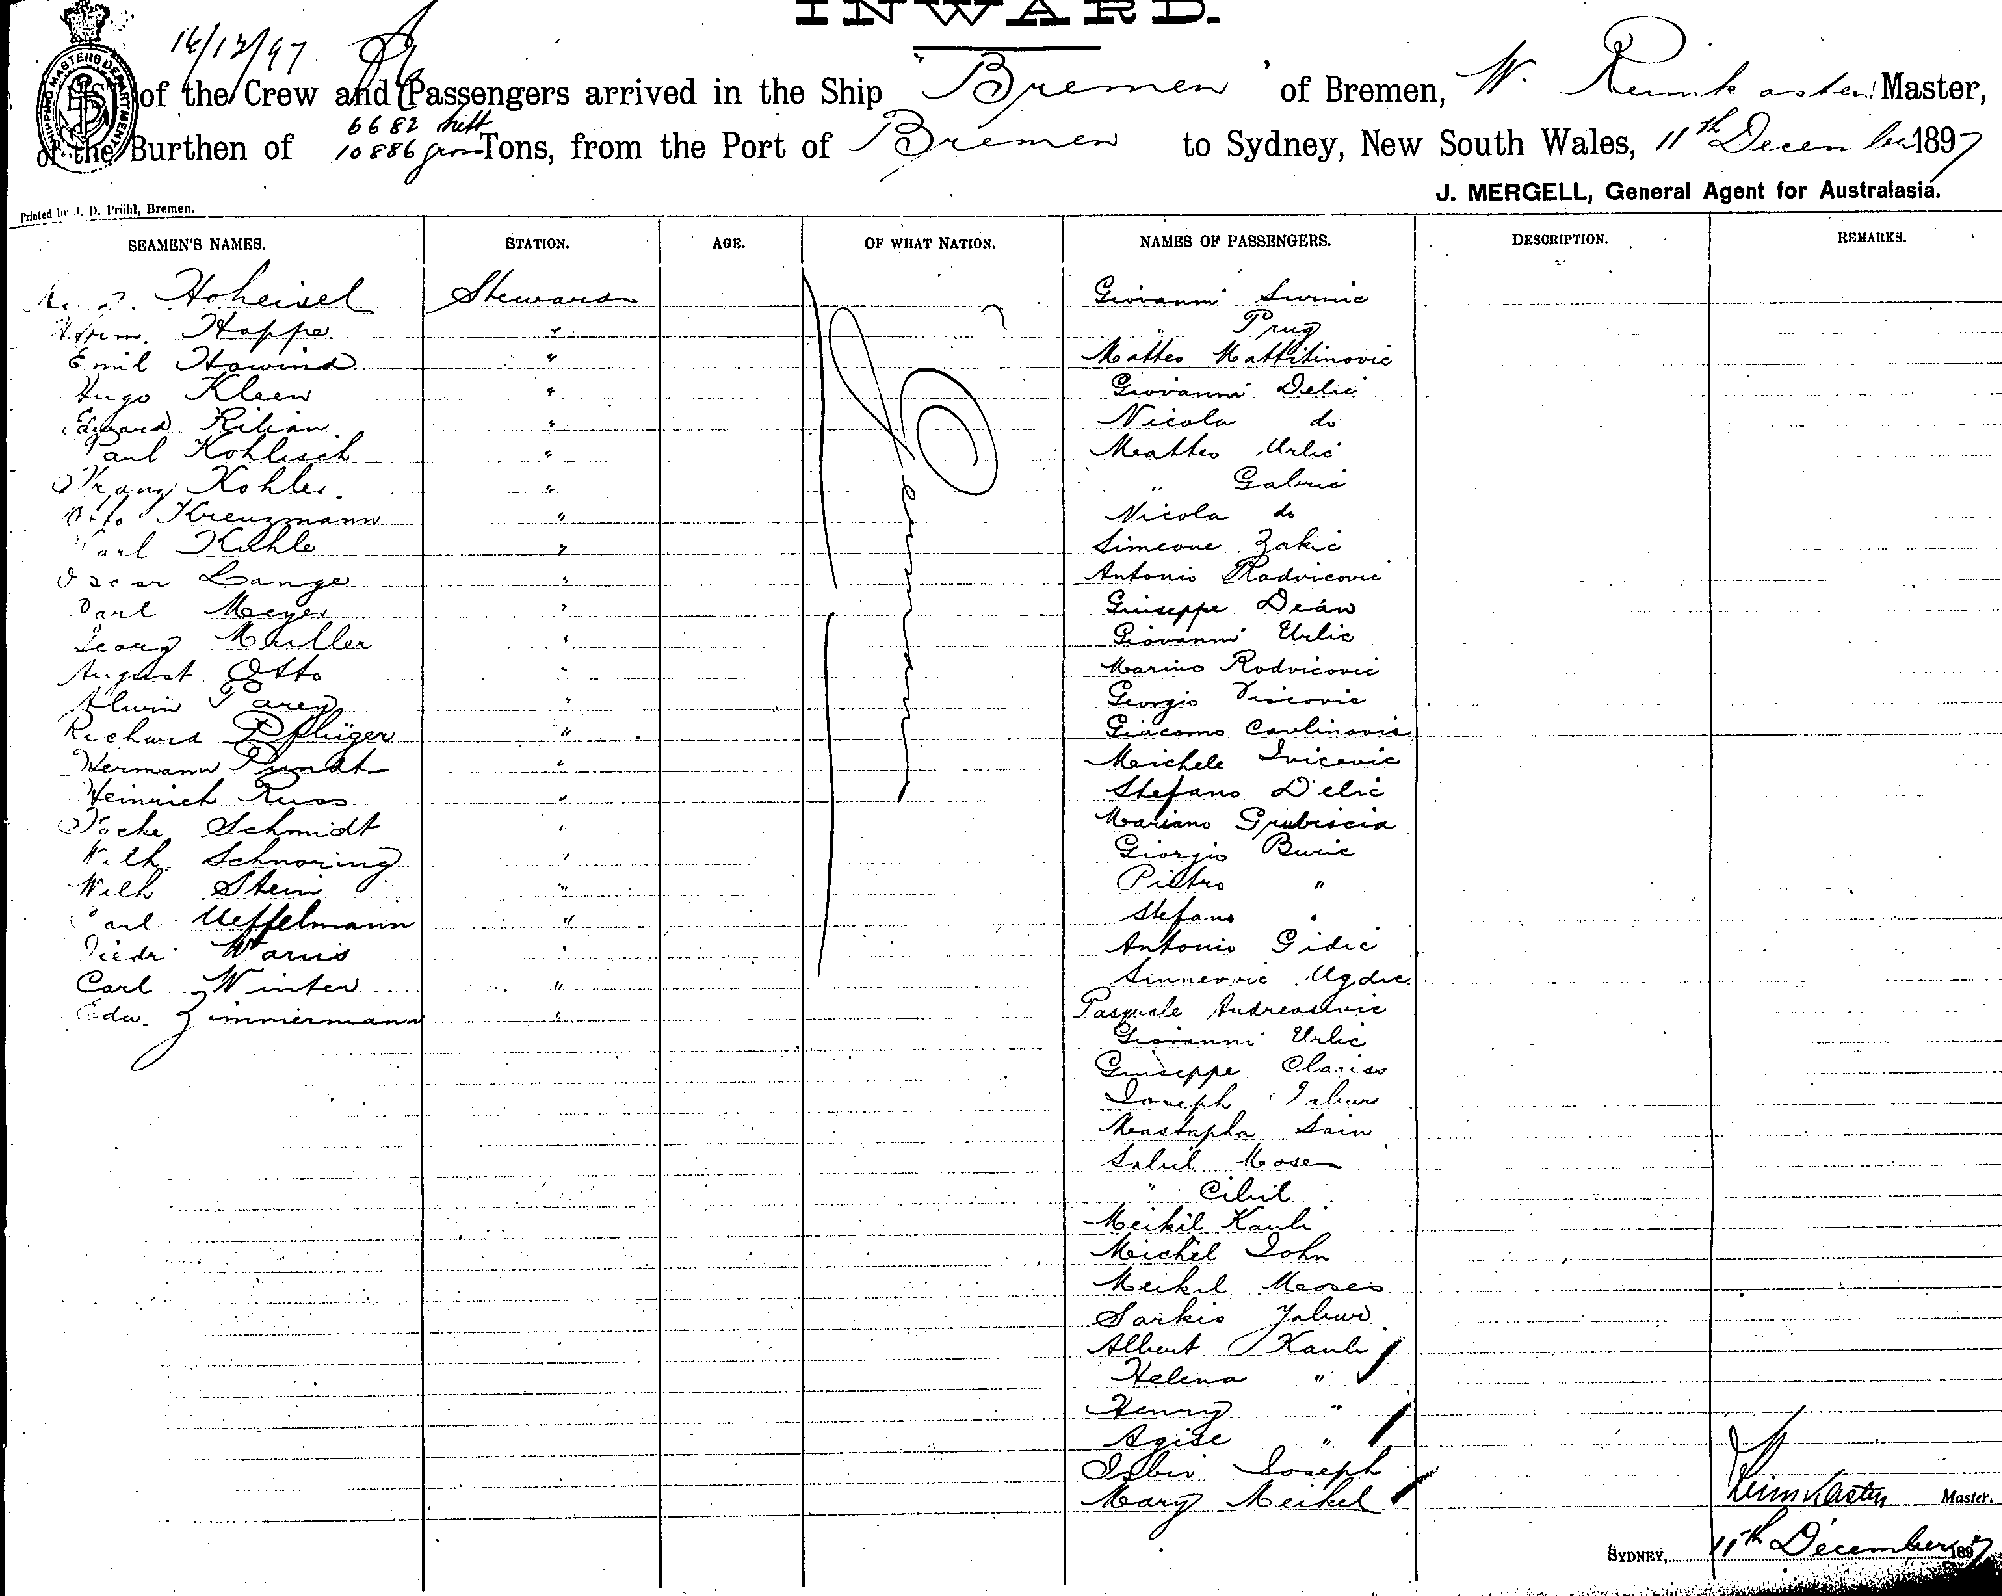 INWARD.
14/12/97
of the Crew and Passengers arrived in the Ship "Bremen" of Bremen, W. Reimkasten Master,
6682 nett
of the Burthen of 10886 gross Tons, from the Port of Bremen to Sydney, New South Wales, 11th December 1897
J. MERGELL, General Agent for Australasia.
Printed by J. D. Prühl, Bremen.
SEAMEN'S NAMES. STATION. AGE. OF WHAT NATION. NAMES OF PASSENGERS. DESCRIPTION. REMARKS.
Hoheisel Stewards Giovanni
Herm. Hoppe " " Prug
Emil Hawind " Matteo Mattitinovic
Hugo Kleen " Giovanni Delic
Eduard Kilian " Nicola do
Paul Kohlisch " Mattheo Urlic
Franz Kohler " " Galvric
Otto Kreuzmann " Nicola do
Carl Kuhle " Simeone Zakic
Oscar Lange " Antonio Radvicovic
Carl Meyer " Guiseppe Dean
Georg Muller " Giovanni Urlic
August Otto " Marino Rodvicovic
Alwin " Georgio Viscovic
Richard Pflüger " Giacomo Caulinovis
Hermann Pundt " Meichele Ivicevic
Heinrich Russ " Stefano Delic
Focke Schmidt " Mariano Grubiscia
Wilh. Schnoring " Giorgio Buric
Wilh Stein " Pietro "
Carl Ueffelmann " Stefano "
Diedr Warns " Antonio Gidic
Carl Winter " Ugdic
Edw. Zimmermann " Pasquale Andreasevic
Giovanni Urlic
Guiseppe Clariss
Joseph
Mastapha Sain
Salul Moses
" Cibil
Meikil Kauli
Meichel John
Meikel Moses
Sarkis
Albert Kauli
Helena "
Henry "
Agise "
Joseph
Mary Meikel
German
Reimkasten Master.
SYDNEY, 11th December 1897